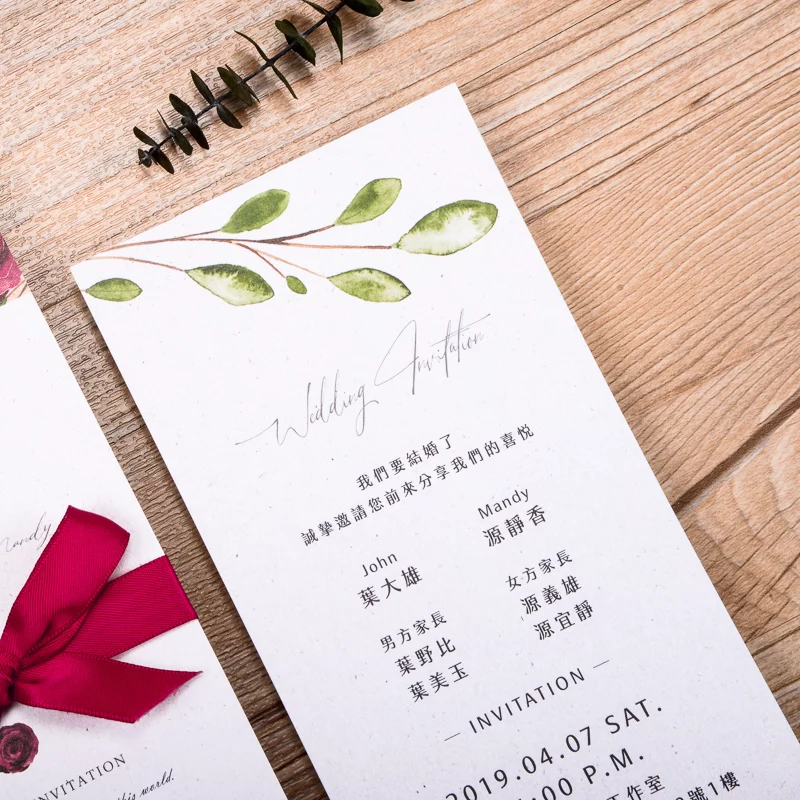 Wedding Invitation
我們要結婚了
誠摯邀請您前來分享我們的喜悅
John
葉大雄
Mandy
源靜香
男方家長
葉野比
葉美玉
女方家長
源義雄
源宜靜
— INVITATION —
2019.04.07 SAT.
:00 P.M.
工作室
號1樓
Mandy
INVITATION
this world.